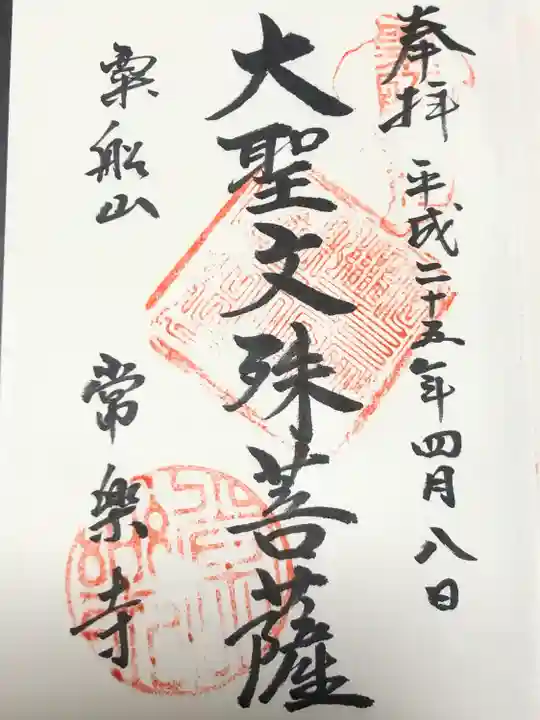 奉拝 平成二十五年四月八日
大聖文殊菩薩
粟船山 常楽寺